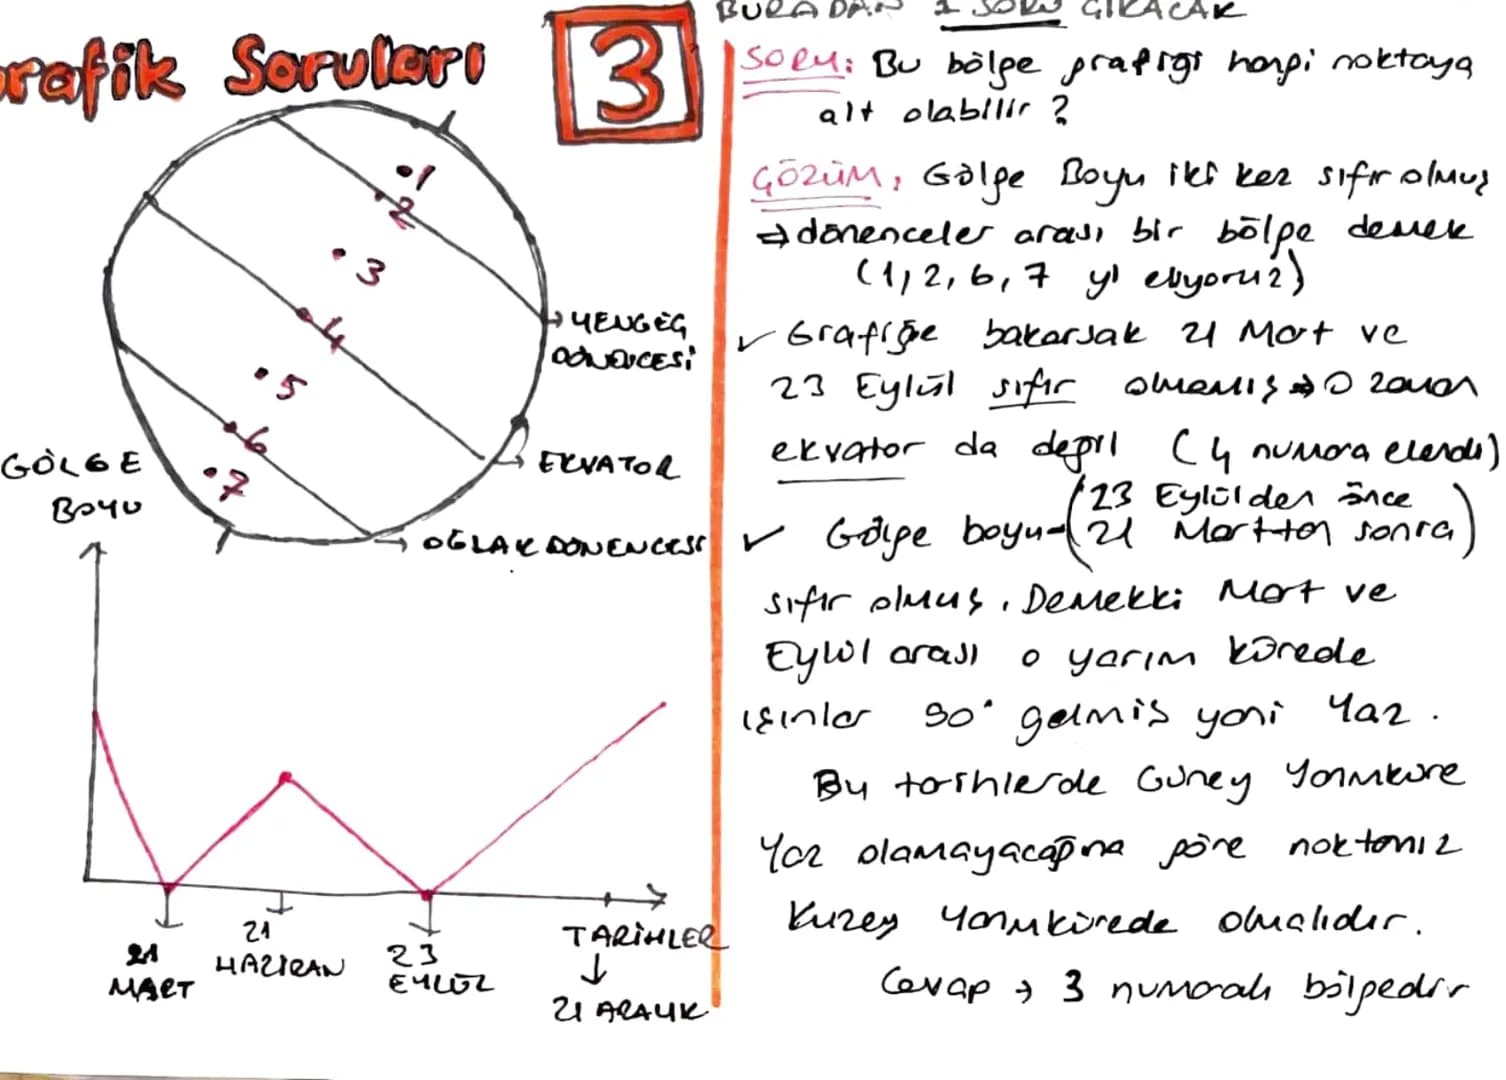 rafik Soruları
3
BURADAN 1 SORU ÇIKACAK
SORU: Bu bölge grafiği hangi noktaya
ait olabilir?
ÇÖZÜM: Gölge Boyu iki kez sıfır olmuş
⇒ dönenceler arası bir bölge demek
(1, 2, 6, 7 yi eliyoruz)
✓ Grafiğe bakarsak 21 Mart ve
23 Eylül sıfır olmamış ⇒ O zaman
ekvator da değil (4 numara elendi)
✓ Gölge boyu (23 Eylülden önce
21 Marttan sonra)
sıfır olmuş. Demekki Mart ve
Eylül arası o yarım kürede
ışınlar 90° gelmiş yani Yaz.
Bu tarihlerde Güney Yarımküre
Yaz olamayacağına göre noktamız
Kuzey Yarımkürede olmalıdır.
Cevap → 3 numaralı bölgedir
1
2
3
4
5
6
7
→ YENGEÇ
DÖNENCESİ
→ EKVATOR
→ OĞLAK DÖNENCESİ
GÖLGE
BOYU
21
MART
21
HAZİRAN
23
EYLÜL
TARİHLER
↓
21 ARALIK